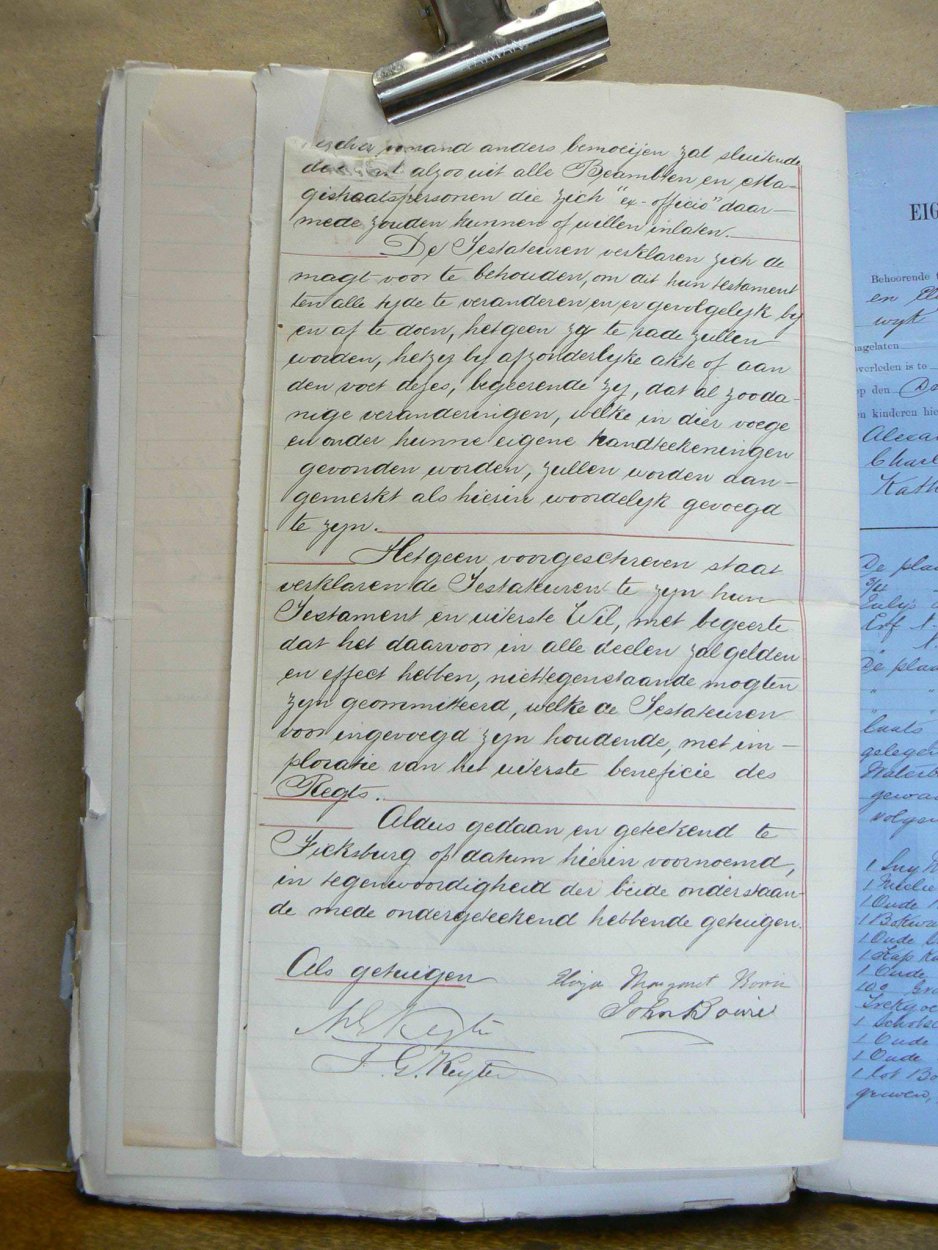 TAIWAN
anders bemoeijen zal sluitende
alzoo uit alle Beambten en Ma-
gistraatspersonen die zich "ex-officio" daar-
mede zouden kunnen of willen inlaten.
De Testateuren verklaren zich de
magt voor te behouden, om dit hun testament
ten alle tyde te veranderen en er gevolgelijk by
en af te doen, hetgeen zy te rade zullen
worden, hetzij by afzonderlyke akte of aan
den voet dezes, begeerende zy, dat al zooda-
nige veranderingen, welke in dier voege
en onder hunne eigene handteekeningen
gevonden worden, zullen worden aan-
gemerkt als hierin woordelyk gevoegd
te zyn.
Hetgeen voorgeschreven staat
verklaren de Testateuren te zyn hun
Testament en uiterste Wil, met begeerte
dat het daarvoor in alle deelen zal gelden
en effect hebben, niettegenstaande mogten
zyn geommitteerd, welke de Testateuren
voor ingevoegd zyn houdende, met im-
ploratie van het uiterste beneficie des
Regts.
Aldus gedaan en geteekend te
Ficksburg op datum hierin voornoemd,
in tegenwoordigheid der beide onderstaan-
de mede ondergeteekend hebbende getuigen.
Als getuigen
Margaret
John Bowie
Keyter
J. G. Keyter
EIG
Behoorende
en
wyk
nagelaten
overleden is te
op den De
en kinderen hie
Alexa
Charl
Kath
De plaa
3/4
July's
Erf
De plaa
laats
geleger
Waterb
gewa
volgen
1
1
1 Oude
1
1 Oude
1 Kap Ka
1 Oude
1
1 Oude
1 Oude
1 lot Bo
geween,